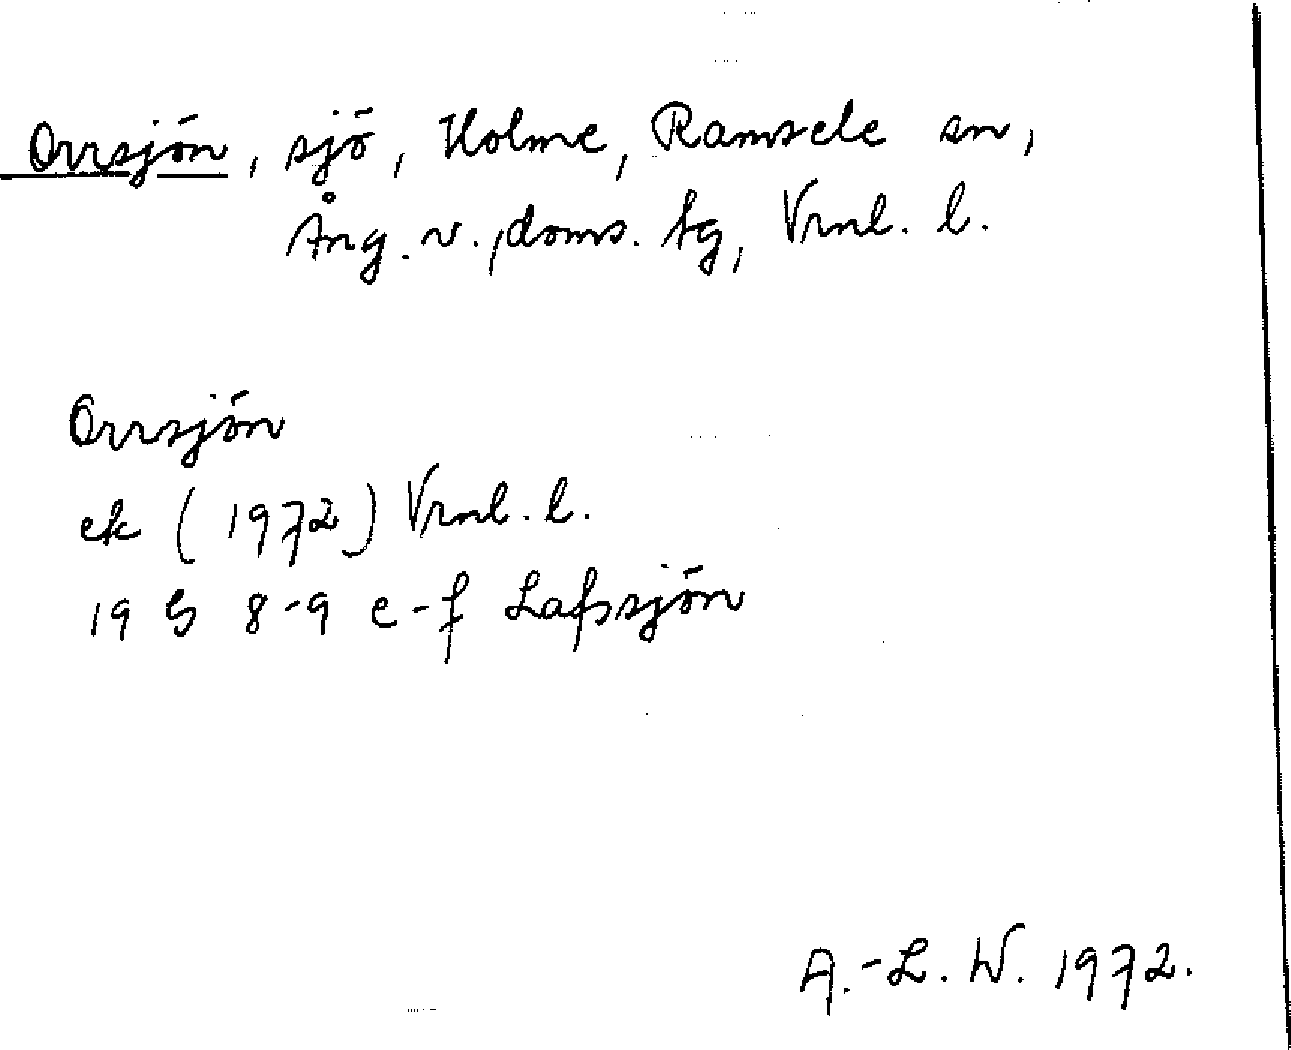 Orrsjön, sjö, Holme, Ramsele sn,
Ång. v., doms. tg, Vrnl. l.
Orrsjön
ek (1972) Vrnl. l.
19 G 8-9 e-f Lafssjön
A.-L. W. 1972.